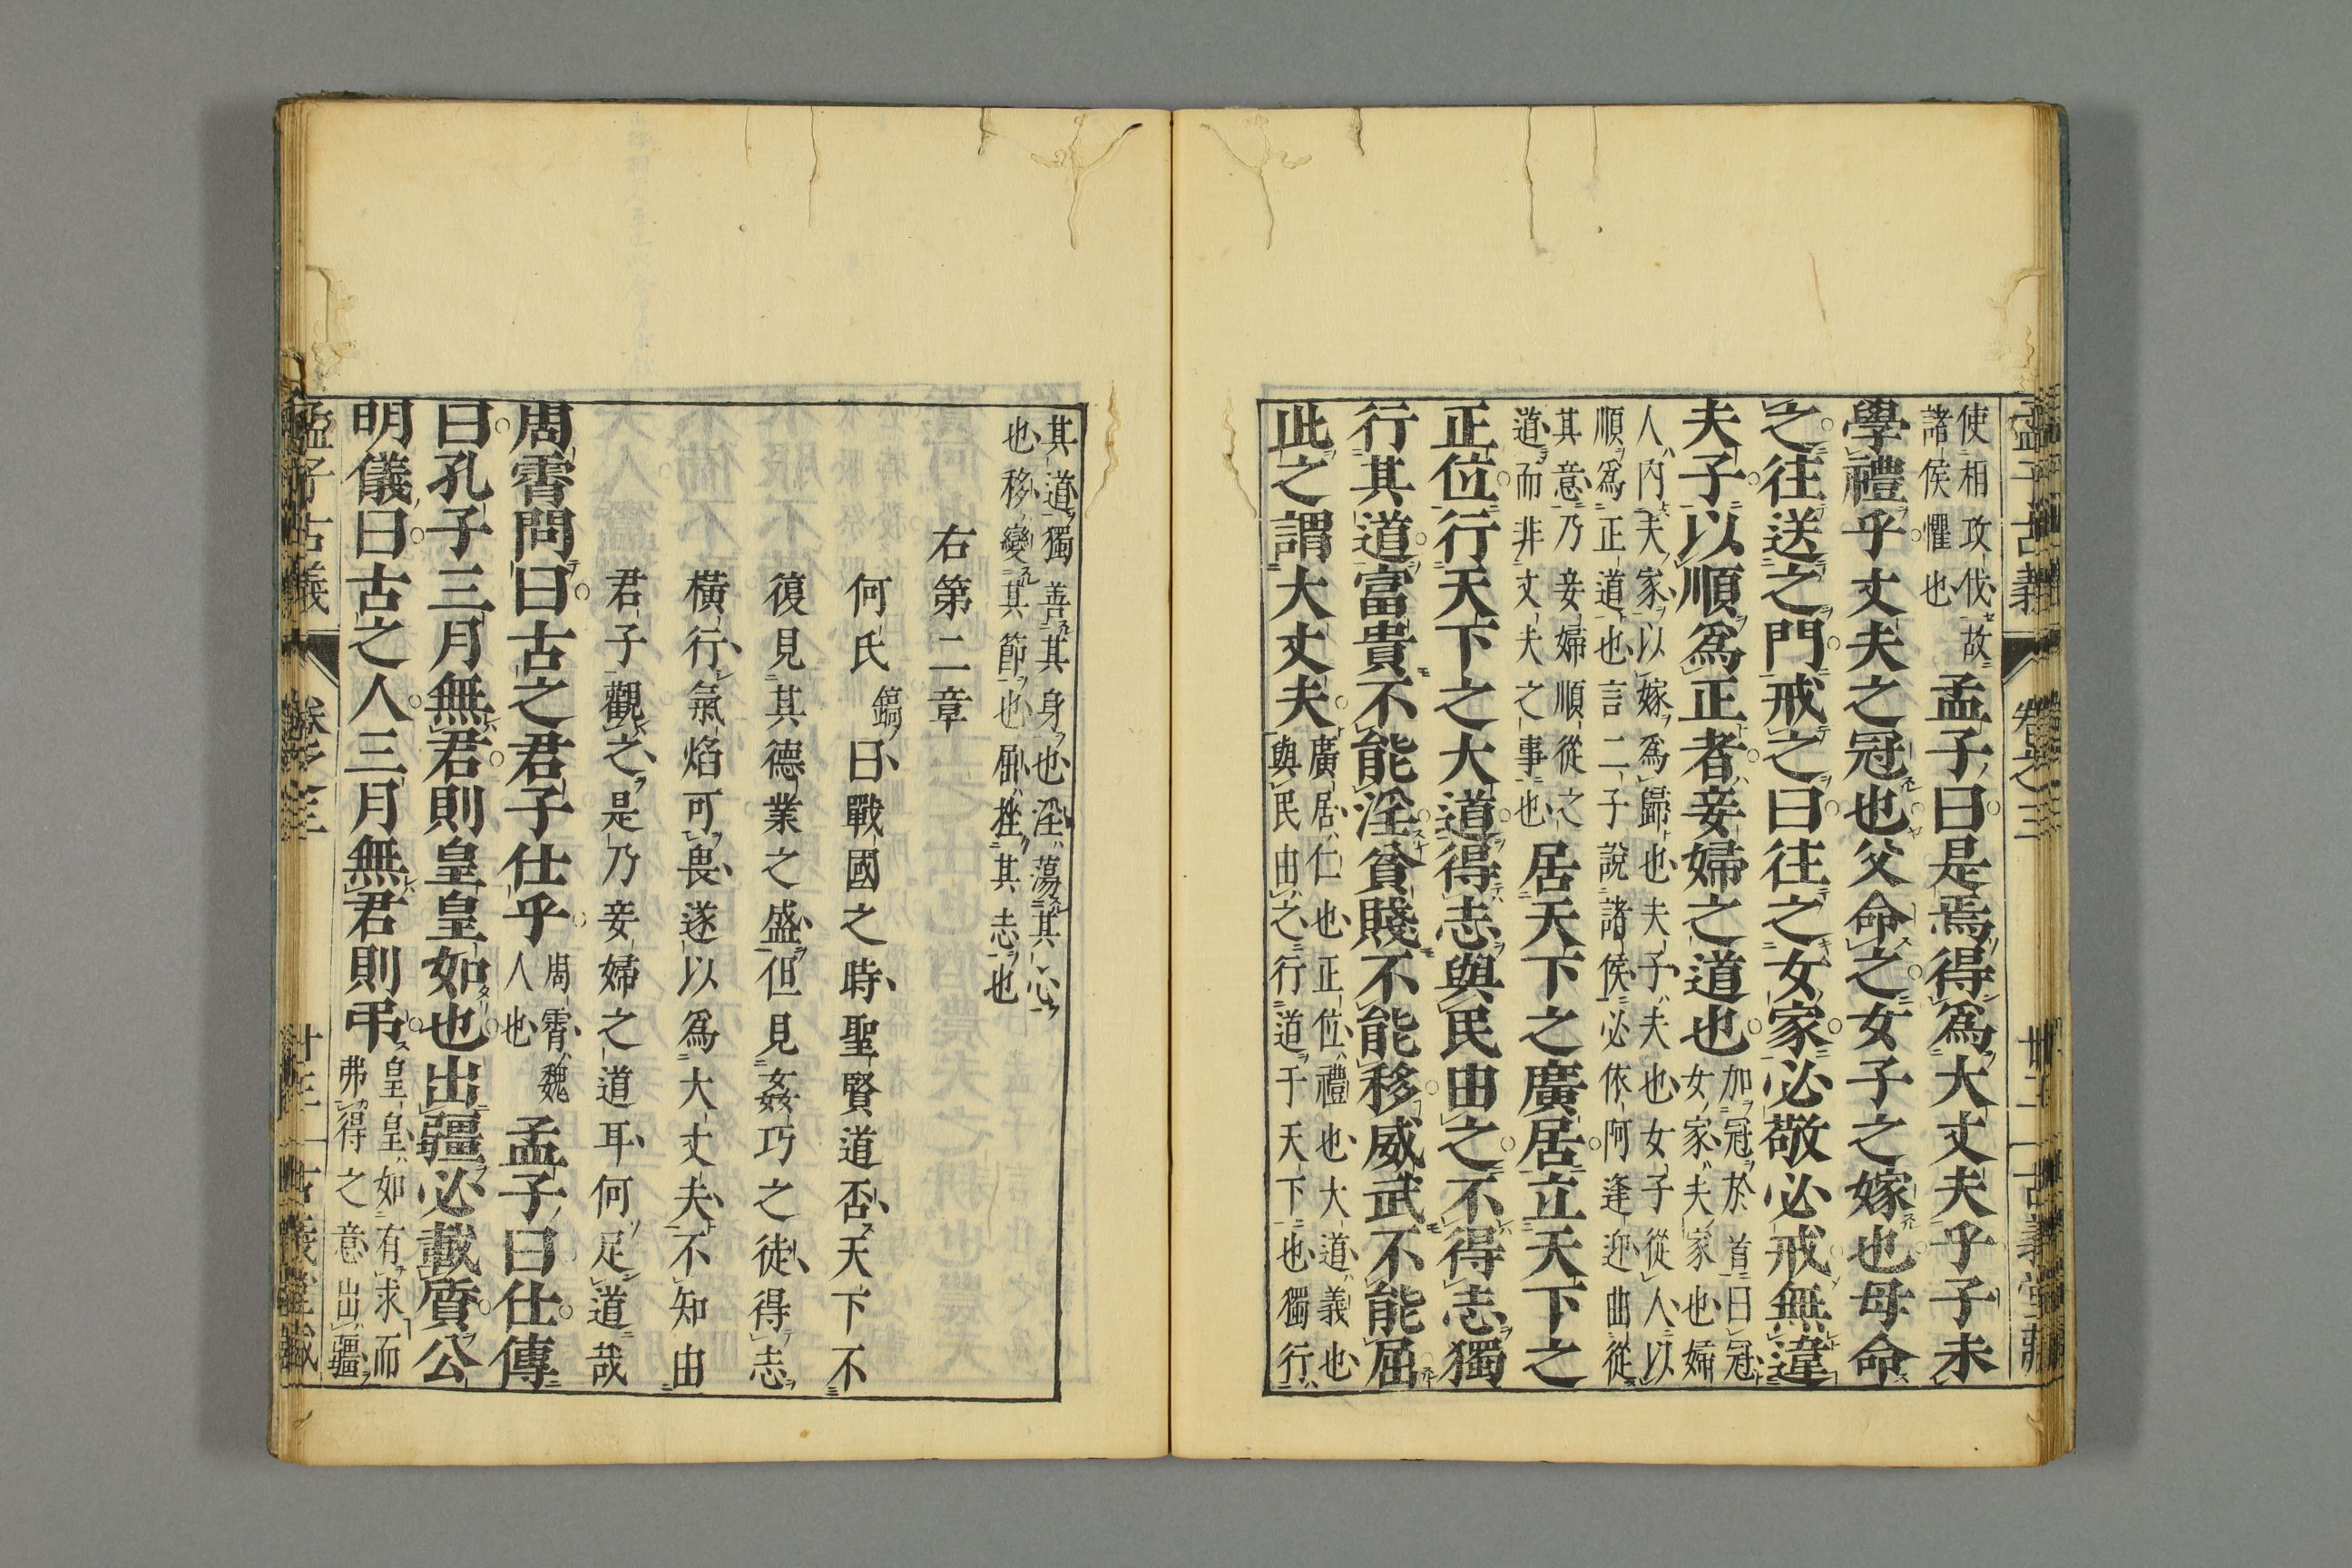 孟子古義 卷之三 廿二 古義堂藏
使相攻伐故
諸侯懼也
孟子曰是焉得爲大丈夫乎子未
學禮乎丈夫之冠也父命之女子之嫁也母命
之往送之門戒之曰往之女家必敬必戒無違
夫子以順爲正者妾婦之道也
加冠於首曰冠
女家夫家也婦
人內夫家以嫁爲歸也夫子夫也女子從人以
順爲正道也言二子說諸侯必依阿逢迎曲從
其意乃妾婦順從之
道而非丈夫之事也
居天下之廣居立天下之
正位行天下之大道得志與民由之不得志獨
行其道富貴不能淫貧賤不能移威武不能屈
此之謂大丈夫
廣居仁也正位禮也大道義也
與民由之行道于天下也獨行
其道獨善其身也淫蕩其心
也移變其節也屈挫其志也
右第二章
何氏
鎬
曰戰國之時聖賢道否天下不
復見其德業之盛但見姦巧之徒得志
橫行氣焰可畏遂以爲大丈夫不知由
君子觀之是乃妾婦之道耳何足道哉
周霄問曰古之君子仕乎
周霄魏
人也
孟子曰仕傳
曰孔子三月無君則皇皇如也出疆必載質公
明儀曰古之人三月無君則弔
皇皇如有求而
弗得之意出疆
孟子古義 卷之三 古義堂藏